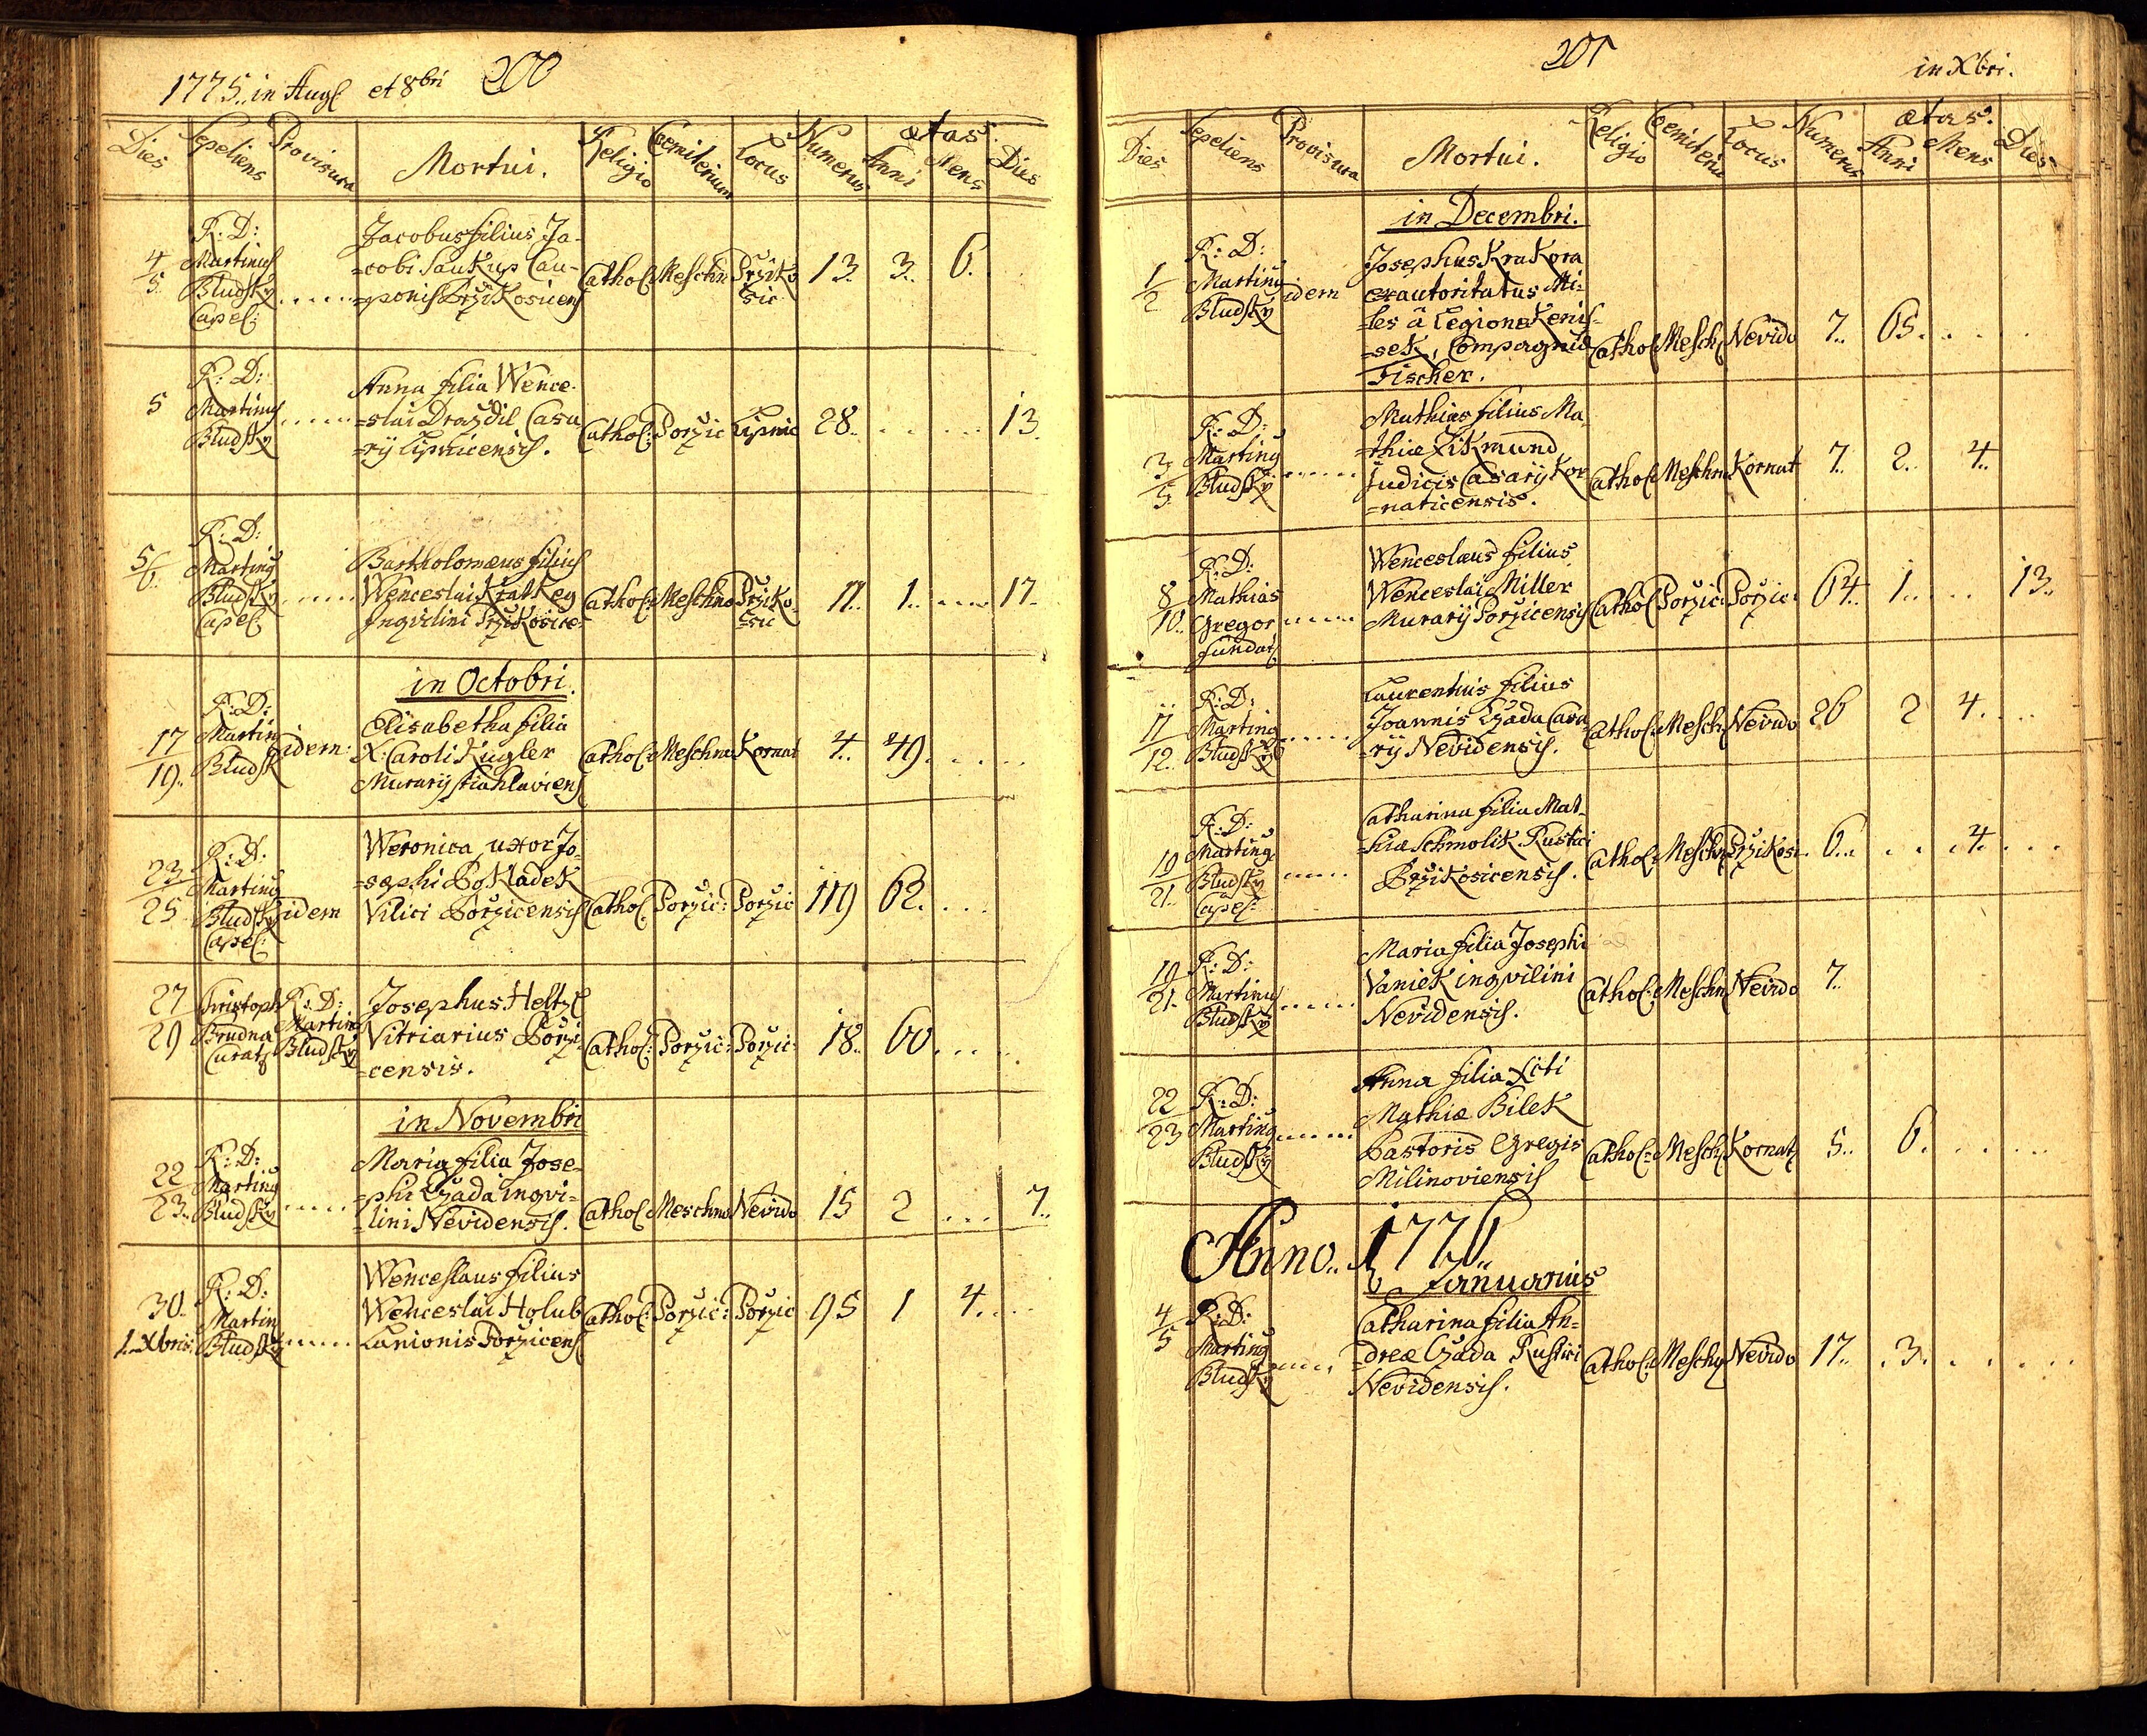 1775. in Aug et 8bri 200
Dies Sepeliens Provisura Mortui. Religio Coemiterium Locus Numerus ætas. Anni Mens Dies
4/5 R: D: Martinus Bludsky Capel: ......
Jacobus filius Ja-
=cobi Saukup Cau-
=ponis Przikosicens
Cathol: Meschn Prziko
sic
13. 3. 6.
5 R: D: Martinus Bludsky ......
Anna filia Wence-
=slai Drazdil Casa
=rij Lipnicensis.
Cathol: Porzic Lipnic 28. . . . 13.
5/6. R: D: Martinus Bludsky Capel: ......
Bartholomæus filius
Wenceslai Kratkey
Inqvilini Przikosice-
Cathol: Meschno Prziko-
=sic
17. 1. ... 17.
in Octobri.
17/19. R: D: Martinus Bludsk idem:
Elisabetha filia
X: Caroli Kugler
Murarij Stiahlaviens
Cathol: Meschno Kornat 4. 49. ....
23/25 R: D: Martinus Bludsky Capel: idem
Weronica uxor Jo-
=sephi Pokladek
Vilici Porzicensis
Cathol: Porzic: Porzic 119 62. ...
27/29 Christoph Brudna Curatg R: D: Martinus Bludsky
Josephus Heltzl
Vitriarius Porzi-
=censis.
Cathol: Porzic: Porzic: 18. 60. ...
in Novembri
22/23. R: D: Martinus Bludsky ......
Maria filia Jose-
=phi Czada inqvi=
=lini Nevidensis.
Cathol Meschno Nevido 15 2 ... 7.
30. 1. Xbris: R: D: Martin Bludsky ......
Wenceslaus filius
Wenceslai Holub
Lanionis Porzicens
Cathol: Porzic: Porzic 95 1 4. ...
201 in Xbri.
Dies Sepeliens Provisura Mortui. Religio Coemiteriu Locus Numerus ætas. Anni Mens Dies
in Decembri.
1/2 R: D: Martinus Bludsky idem
Josephus Krakora
exautoritatus Mi-
=les â Legione Kenis-
=sek, Compagnia
Fischer.
Cathol Mesch: Nevido 7. 65. . . .
3/5 R: D: Martinus Bludsky ......
Mathias filius Ma-
=thiæ Zikmund
Judicis Casarij Kor
=naticensis.
Cathol: Meschno Kornat 7. 2. 4.
8/10. R: D: Mathias Gregor fundat: ......
Wenceslaus filius
Wenceslai Miller
Murarij Porzicensis
Cathol Porzic: Porzic: 64. 1. ... 13.
11/12. R: D: Martinus Bludsky ......
Laurentius filius
Joannis Czada Casa
=rij Nevidensis.
Cathol: Mesch: Nevido 26 2 4. ...
19/21. R: D: Martinus Bludsky Capel: ......
Catharina filia Mat-
=hiæ Schmolik Rustici
Przikosicensis.
Cathol: Meschn Przikosi 6. . . 4. ...
19/21. R: D: Martinus Bludsky ......
Maria filia Josephi
Vaniek inqvilini
Nevidensis.
Cathol: Meschn Nevido 7.
22/23 R: D: Martinus Bludsky ......
Anna filia Xcti
Mathiæ Bilek
Pastoris Gregis
Milinoviensis
Cathol: Mesch: Kornat: 5. 6. ....
Anno. 1776.
Januarius
4/5 R: D: Martinus Bludsky ......
Catharina filia An=
=dreæ Czada Rustici
Nevidensis.
Cathol: Mesch: Nevido 17. 3. ....